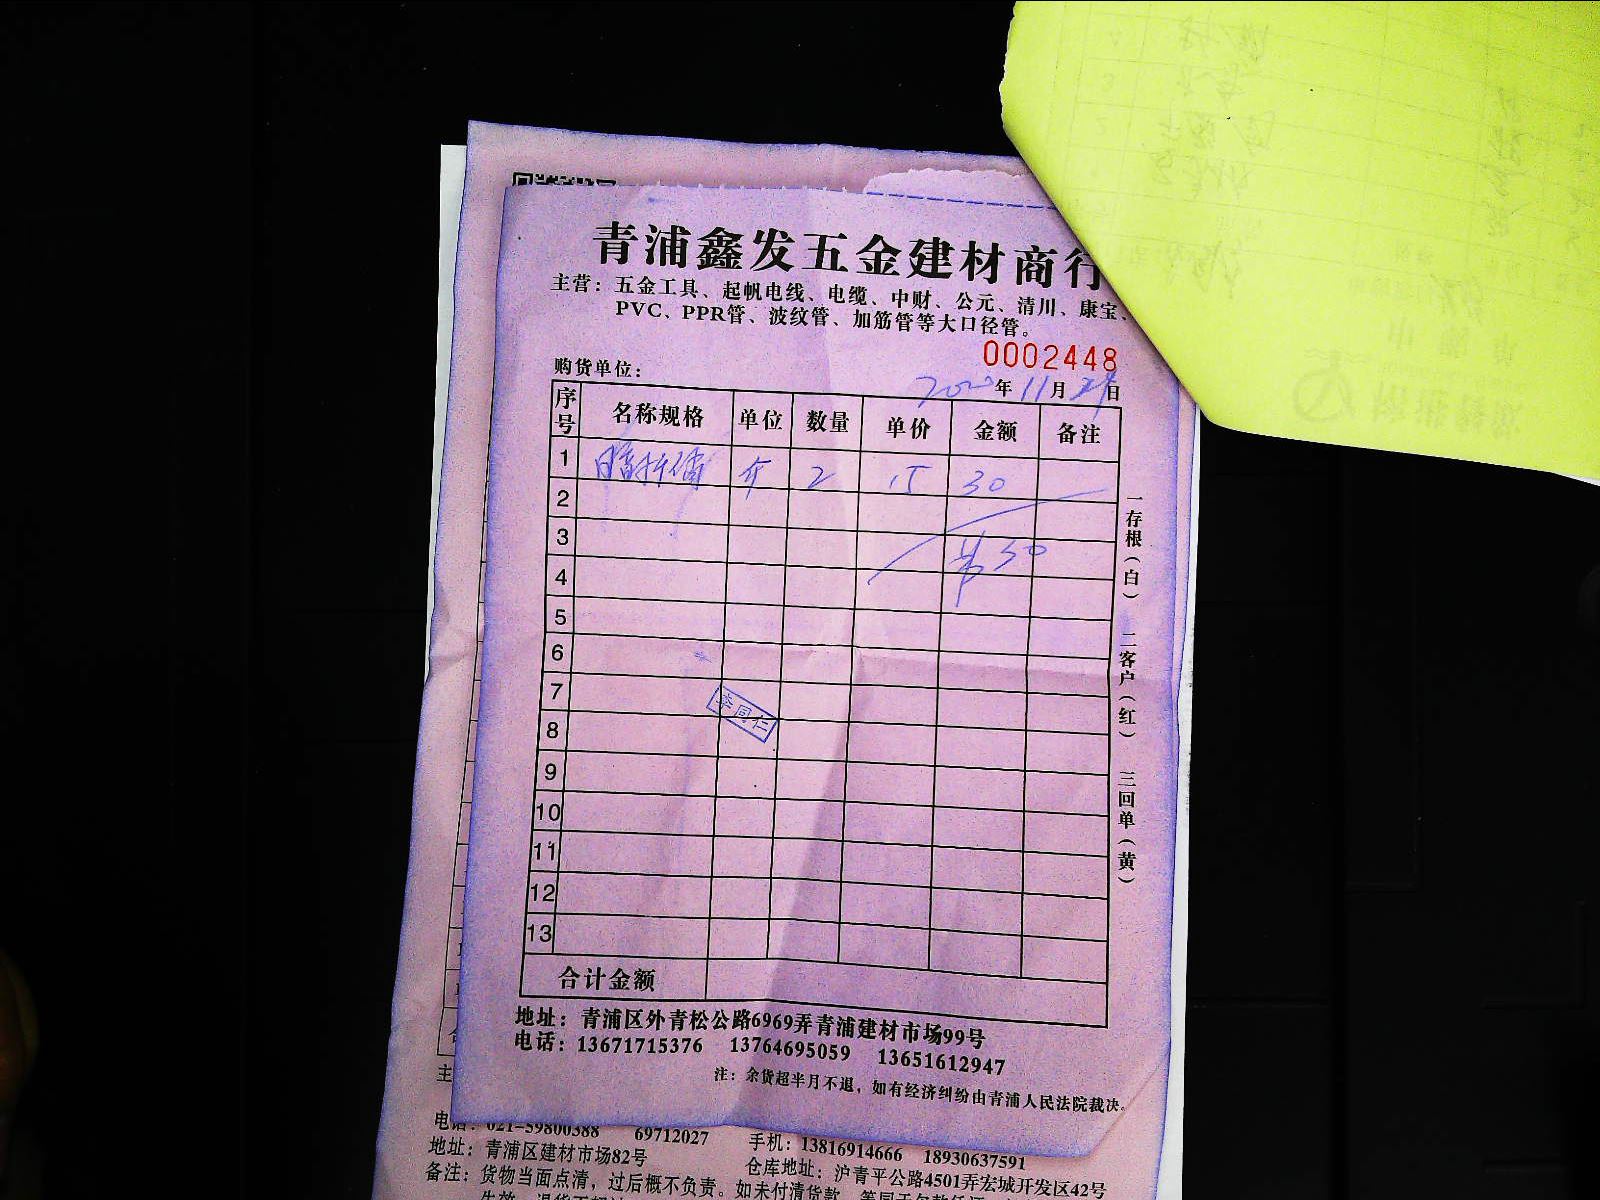 青浦鑫发五金建材商行
主营：五金工具、起帆电线、电缆、中财、公元、清川、康宝、
PVC、PPR管、波纹管、加筋管等大口径管。
0002448
购货单位：
年 11 月 日
序号 名称规格 单位 数量 单价 金额 备注
1 暗 2 15 30
2
3 30
4
5
6
7
8
9
10
11
12
13
李同仁
合计金额
一存根（白） 二客户（红） 三回单（黄）
地址：青浦区外青松公路6969弄青浦建材市场99号
电话：13671715376 13764695059 13651612947
注：余货超半月不退，如有经济纠纷由青浦人民法院裁决。
主
电话：021-59800388 69712027 手机：13816914666 18930637591
地址：青浦区建材市场82号 仓库地址：沪青平公路4501弄宏城开发区42号
备注：货物当面点清，过后概不负责。如未付清货款，